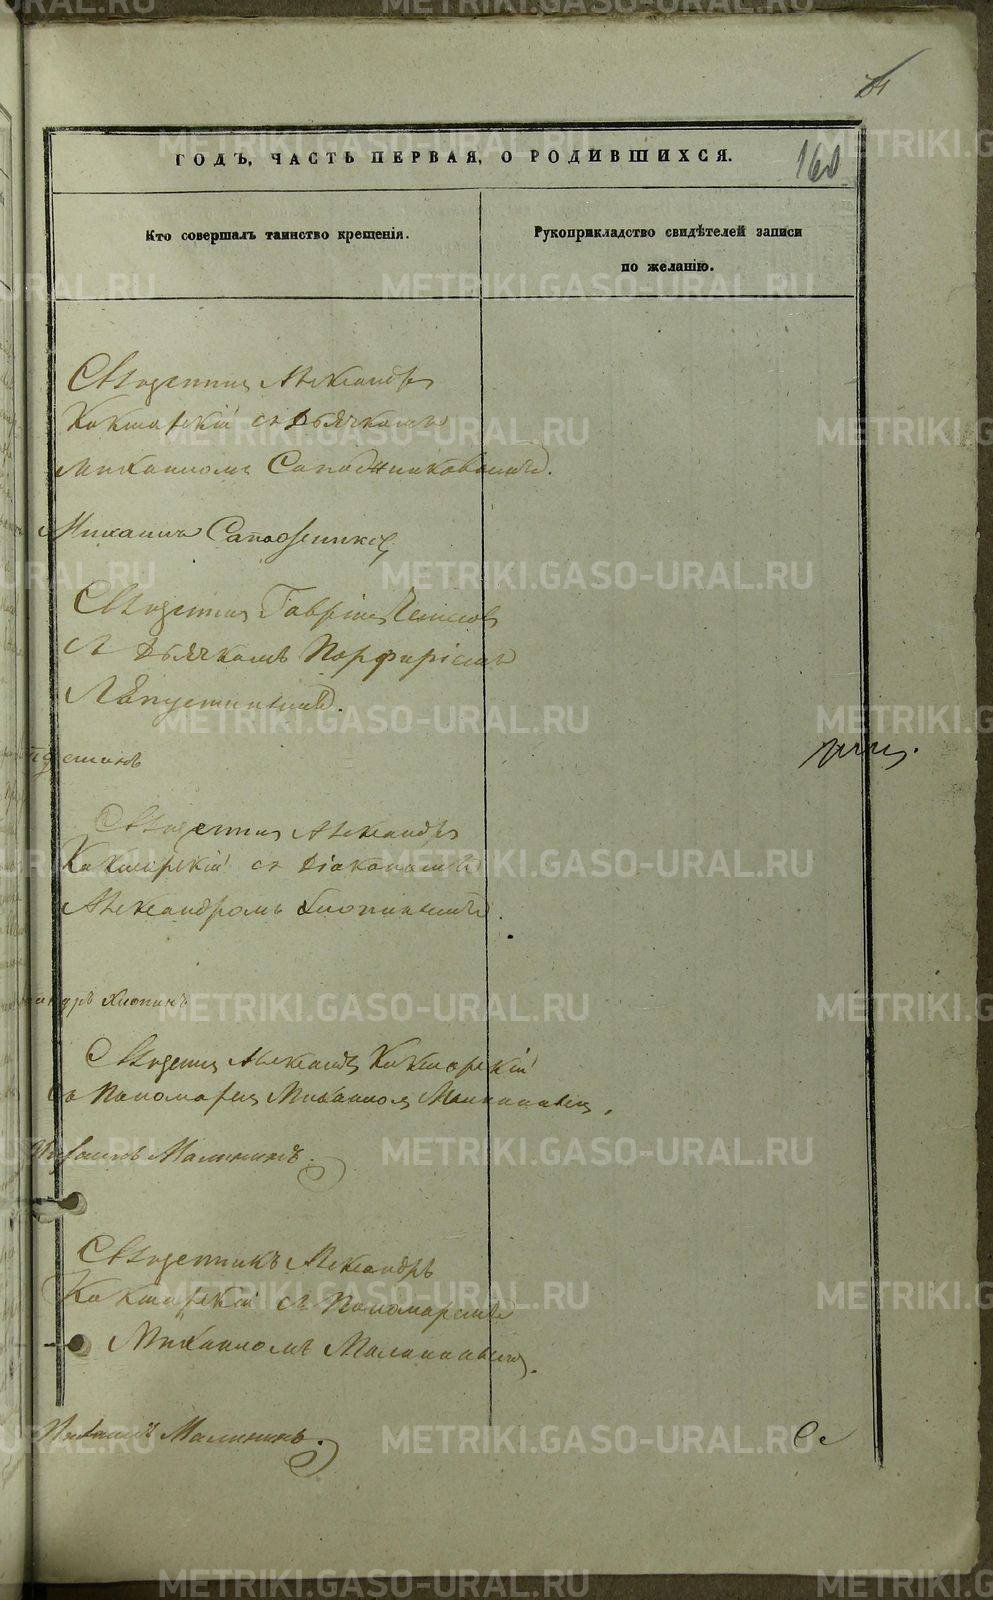 160
ГОДЪ, ЧАСТЬ ПЕРВАЯ, О РОДИВШИХСЯ.
Кто совершалъ таинство крещенія.
Рукоприкладство свидѣтелей записи
по желанію.
Священникъ Александръ
Кокшарскій съ Дьячкомъ
Михаиломъ Сапожниковымъ.
Михаилъ Сапожниковъ
Священникъ Гавріилъ
съ Дьячкомъ Порфиріемъ
Лѣпустинымъ.
Священникъ Александръ
Кокшарскій съ Діакономъ
Александромъ Хлопинымъ.
Хлопинъ
Священникъ Александръ Кокшарскій
съ Пономаремъ Михаиломъ Малининымъ.
Михаилъ Малининъ.
Священникъ Александръ
Кокшарскій съ Пономаремъ
Михаиломъ Малининымъ.
Михаилъ Малининъ.
METRIKI.GASO-URAL.RU